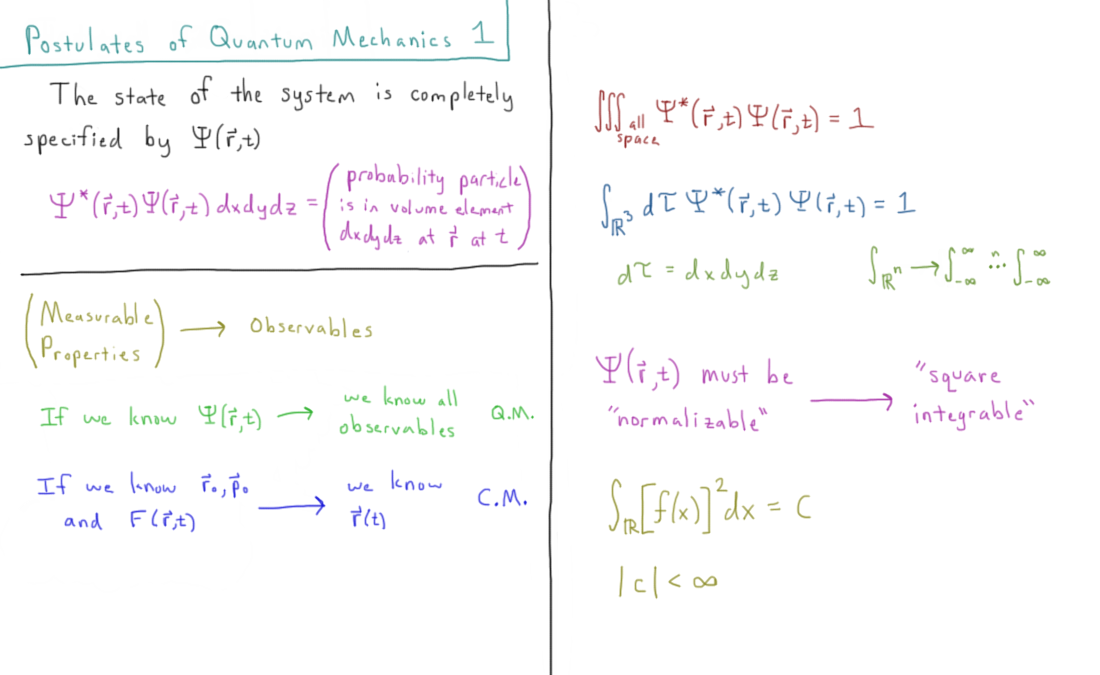 Postulates of Quantum Mechanics 1
The state of the system is completely
specified by Ψ(r⃗,t)
Ψ*(r⃗,t)Ψ(r⃗,t) dxdydz = (probability particle
is in volume element
dxdydz at r⃗ at t)
(Measurable
Properties) → Observables
If we know Ψ(r⃗,t) → we know all
observables Q.M.
If we know r⃗₀, p⃗₀
and F(r⃗,t) → we know
r⃗(t) C.M.
∭ all space Ψ*(r⃗,t)Ψ(r⃗,t) = 1
∫_ℝ³ dτ Ψ*(r⃗,t) Ψ(r⃗,t) = 1
dτ = dxdydz
∫_ℝⁿ → ∫_-∞^∞ ⋯ⁿ ∫_-∞^∞
Ψ(r⃗,t) must be
"normalizable" → "square
integrable"
∫_ℝ [f(x)]² dx = C
|c| < ∞